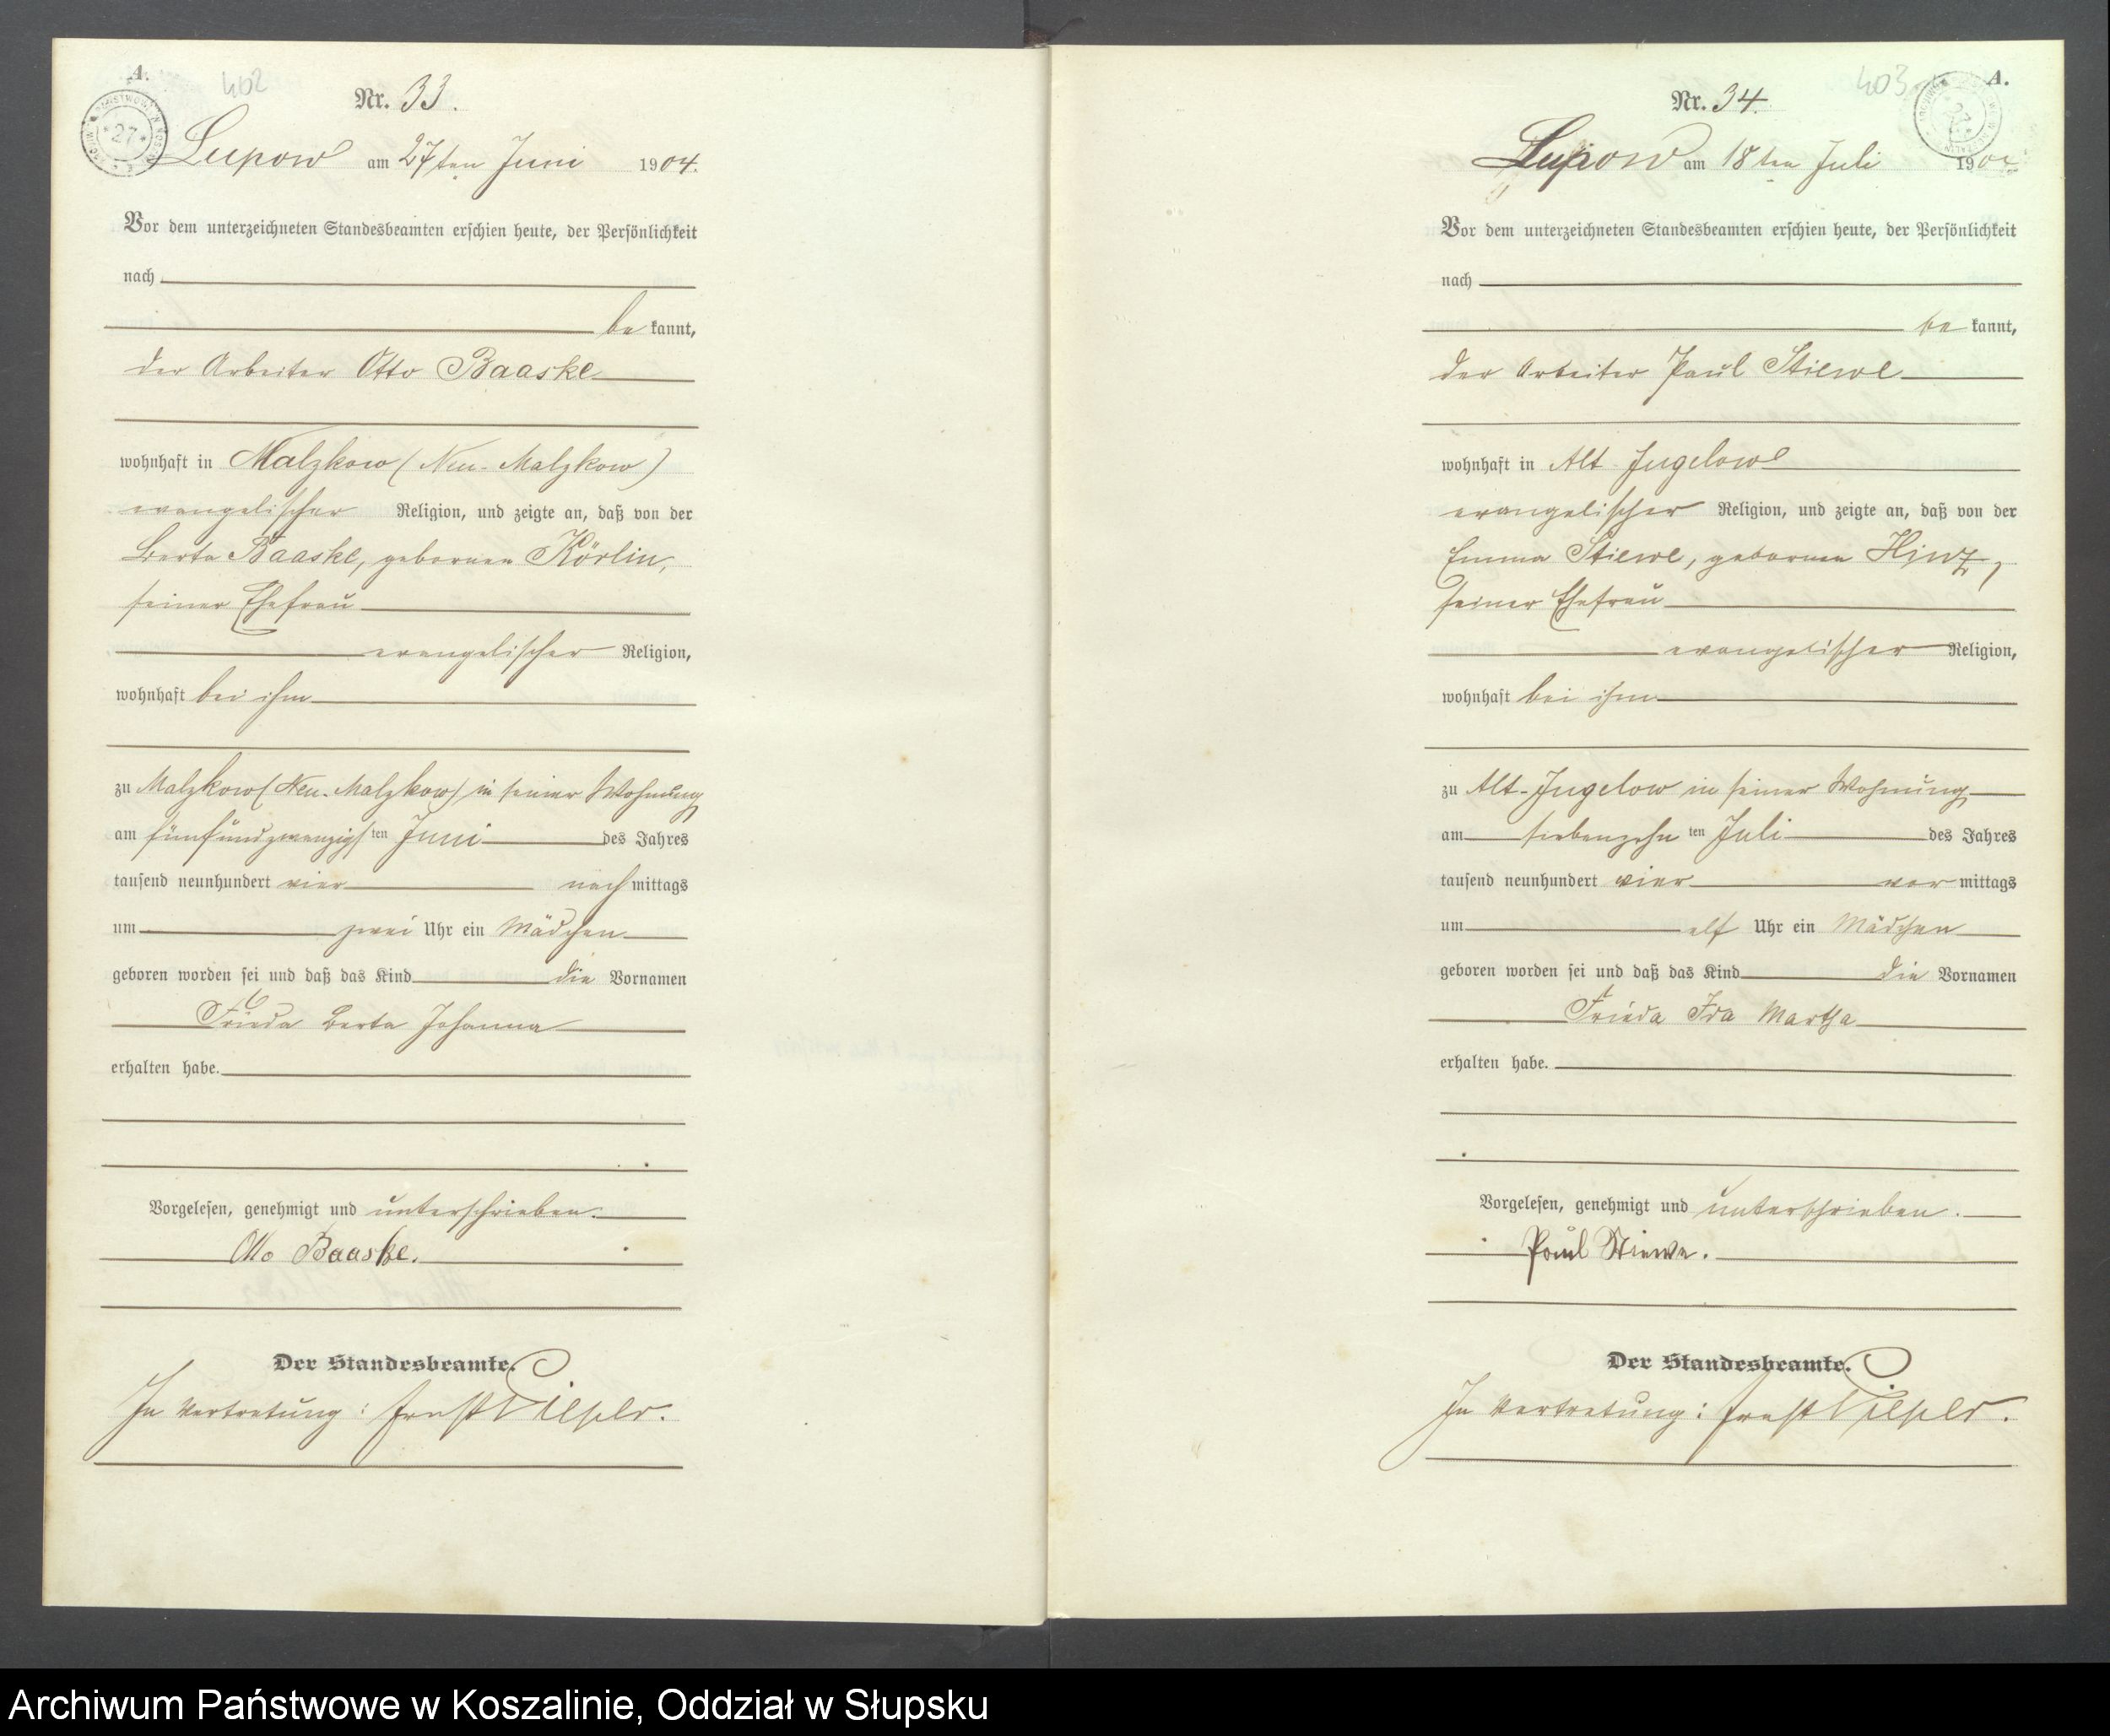 A.
402
Nr. 33.
Lupow am 27ten Juni 1904.
Vor dem unterzeichneten Standesbeamten erschien heute, der Persönlichkeit
nach
be kannt,
der Arbeiter Otto Baaske
wohnhaft in Malzkow (Neu-Malzkow)
evangelischer Religion, und zeigte an, daß von der
Berta Baaske, geborenen Körlin,
seiner Ehefrau
evangelischer Religion,
wohnhaft bei ihm
zu Malzkow (Neu-Malzkow) in seiner Wohnung
am fünfundzwanzigsten Juni des Jahres
tausend neunhundert vier nach mittags
um zwei Uhr ein Mädchen
geboren worden sei und daß das Kind die Vornamen
Frieda Berta Johanna
erhalten habe.
Vorgelesen, genehmigt und unterschrieben.
Otto Baaske.
Der Standesbeamte.
In Vertretung: Ernst
A.
403
Nr. 34.
Lupow am 18ten Juli 190
Vor dem unterzeichneten Standesbeamten erschien heute, der Persönlichkeit
nach
be kannt,
der Arbeiter Paul Stiewe
wohnhaft in Alt Jugelow
evangelischer Religion, und zeigte an, daß von der
Emma Stiewe, geborenen Hinz,
seiner Ehefrau
evangelischer Religion,
wohnhaft bei ihm
zu Alt-Jugelow in seiner Wohnung
am siebenzehn ten Juli des Jahres
tausend neunhundert vier vor mittags
um elf Uhr ein Mädchen
geboren worden sei und daß das Kind die Vornamen
Frieda Ida Martha
erhalten habe.
Vorgelesen, genehmigt und unterschrieben.
Paul Stiewe.
Der Standesbeamte.
In Vertretung: Ernst
Archiwum Państwowe w Koszalinie, Oddział w Słupsku